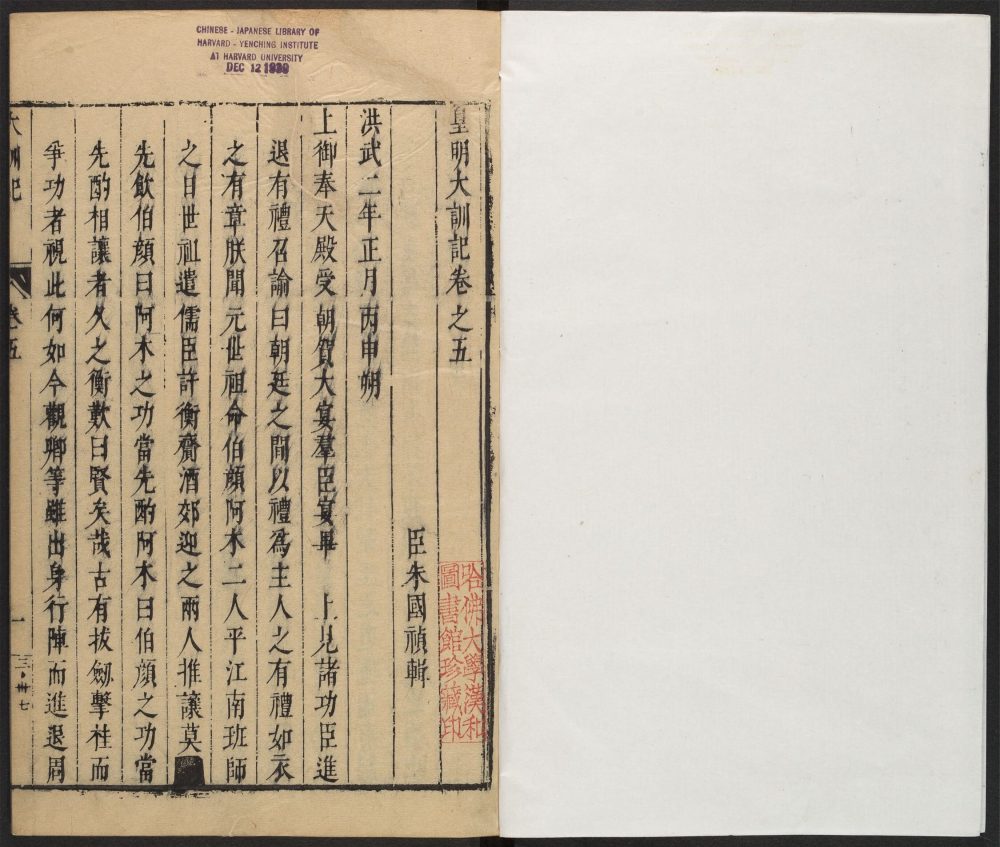 CHINESE - JAPANESE LIBRARY OF
HARVARD - YENCHING INSTITUTE
AT HARVARD UNIVERSITY
DEC 12 1939
皇明大訓記卷之五
臣朱國禎輯
哈佛大學漢和
圖書館珍藏印
洪武二年正月丙申朔
上御奉天殿受朝賀大宴羣臣宴畢 上見諸功臣進
退有禮召諭曰朝廷之間以禮為主人之有禮如衣
之有章朕聞元世祖命伯顏阿木二人平江南班師
之日世祖遣儒臣許衡齎酒郊迎之兩人推讓莫
先飲伯顏曰阿木之功當先酌阿木曰伯顏之功當
先酌相讓者久之衡歎曰賢矣哉古有拔劔擊柱而
爭功者視此何如今觀卿等雖出身行陣而進退周
大訓記
卷五
一
三·卅七